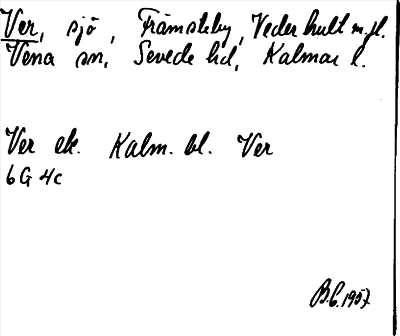 Ver, sjö, Främsteby, Vederhult m.fl.
Vena sn, Sevede hd, Kalmar l.
Ver ek. Kalm. bl. Ver
6G 4c
B.E. 1957